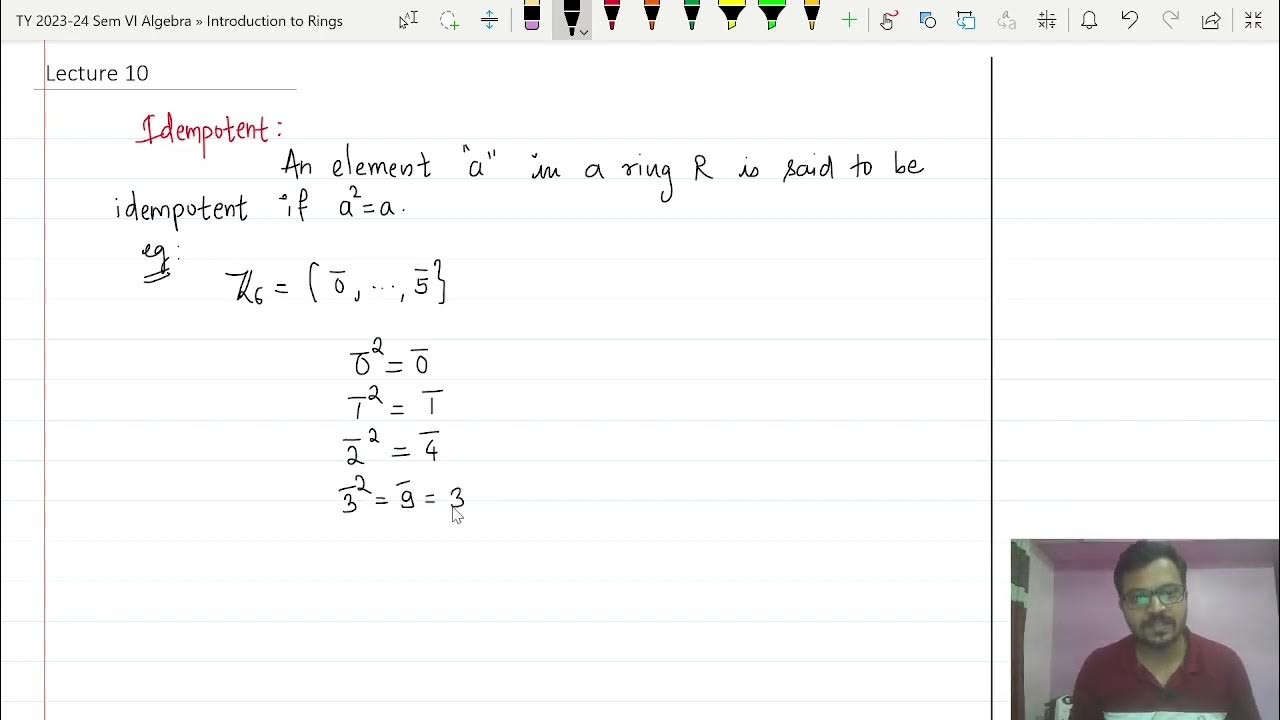 TY 2023-24 Sem VI Algebra » Introduction to Rings
Lecture 10
Idempotent:
An element "a" in a ring R is said to be
idempotent if a²=a.
eg:
ℤ₆ = { 0̅, ..., 5̅ }
0̅² = 0̅
1̅² = 1̅
2̅² = 4̅
3̅² = 9̅ = 3